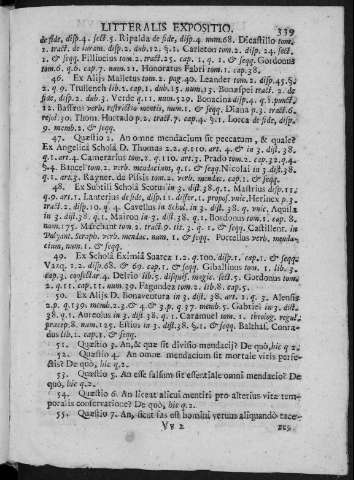 LITTERALIS EXPOSITIO. 339
de fide, disp. 4. sect. 5. Ripalda de fide, disp. 4. num. 68. Dicastillo tom.
2. tract. de iuram. disp. 2. dub. 12. §. 2. Carleton tom. 2. disp. 24. sect.
2. & seqq. Filliucius tom. 2. tract. 25. cap. 1. q. 1. & seqq. Gordonus
tom. 6. q. 6. cap. 7. num. 21. Honoratus Fabri tom. 1. cap. 38.
46. Ex Alijs Malletus tom. 2. pag. 40. Leander tom. 2. disp. 45. §.
2. q. 9. Trullench lib. 2. cap. 1. dub. 15. num. 13. Bonæspei tract. 2. de
fide, disp. 2. dub. 3. Verde q. 11. num. 529. Bonacina disp. 4. q. 1. punct.
12. Basseus verb. restrictio mentis, num. 1. & seqq. Diana p. 3. tract. 6.
resol. 30. Thom. Hurtado p. 2. tract. 7. cap. 4. §. 1. Lorca de fide, disp.
9. memb. 2. & seqq.
47. Quæstio 2. An omne mendacium sit peccatum, & quale?
Ex Angelica Scholâ D. Thomas 2. 2. q. 110. art. 4. & in 3. dist. 38.
q. 1. art. 4. Camerarius tom. 2. q. 110. art. 3. Prado tom. 2. cap. 32. q. 4.
§. 4. Bancel tom. 2. verb. mendacium, q. 1. & seqq. Nicolai in 3. dist. 38.
q. 1. art. 3. Rayner. de Pisis tom. 2. verb. mendac. cap. 1. & seqq.
48. Ex Subtili Scholâ Scotus in 3. dist. 38. q. 1. Mastrius disp. 11.
q. 9. art. 1. Lanterius de fide, diss. 11. diffor. 1. propos. vnic. Herinex p. 3.
tract. 2. disp. 10. q. 4. Cavellus in Schol. in 3. dist. 38. q. vnic. Aquila
in 3. dist. 38. q. 1. Mairon in 3. dist. 38. q. 1. Bordonus tom. 1. cap. 8.
num. 175. Marchant tom. 2. tract. 9. tit. 3. q. 1. & seqq. Castillent. in
Polyant. Seraph. verb. mendac. num. 1. & seqq. Portellus verb. menda-
cium, num. 1. & seqq.
49. Ex Scholâ Eximiâ Suarez 1. 2. q. 100. disp. 1. cap. 1. & seqq.
Vazq. 1. 2. disp. 68. & 69. cap. 1. & seqq. Gibalinus tom. 1. lib. 3.
cap. 3. consectar. 4. Delrio lib. 5. disquis. magic. sect. 5. Gordonus tom.
2. q. 11. cap. 11. num. 39. Fagundez tom. 2. lib. 8. cap. 5.
50. Ex Alijs D. Bonaventura in 3. dist. 38. art. 2. q. 3. Alensis
2. p. q. 139. memb. 2. 3. & 4. & 3. p. q. 37. memb. 5. Gabriel in 3. dist.
38. q. 1. Aureolus in 3. dist. 38. q. 1. Caramuel tom. 2. theolog. regul.
præcep. 8. num. 125. Estius in 3. dist. 38. §. 1. & seqq. Balthas. Conra-
dus lib. 1. cap. 1. & seqq.
51. Quæstio 3. An, & quæ sit divisio mendacij? De quò, hic q. 2.
52. Quæstio 4. An omne mendacium sit mortale viris perfe-
ctis? De quò, hic q. 2.
53. Quæstio 5. An esse falsum sit essentiale omni mendacio? De
quò, hic q. 2.
54. Quæstio 6. An liceat alicui mentiri pro alterius vitæ tem-
poralis conservatione? De quò, hic q. 2.
55. Quæstio 7. An, sicut fas est homini verum aliquandò tace-
Vv 2 re,